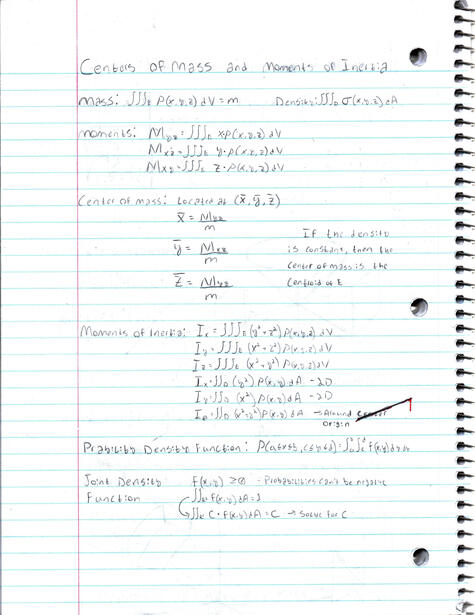 Centers of Mass and Moments of Inertia
Mass: ∭_E ρ(x,y,z) dV = m Density: ∭_D σ(x,y,z) dA
Moments: M_yz = ∭_E xρ(x,y,z) dV
M_xz = ∭_E y·ρ(x,y,z) dV
M_xy = ∭_E z·ρ(x,y,z) dV
Center of Mass: Located at (x̄, ȳ, z̄)
x̄ = M_yz / m
ȳ = M_xz / m
z̄ = M_yz / m
If the density
is constant, then the
center of mass is the
centroid of E
Moments of Inertia: I_x = ∭_E (y²+z²) ρ(x,y,z) dV
I_y = ∭_E (x²+z²) ρ(x,y,z) dV
I_z = ∭_E (x²+y²) ρ(x,y,z) dV
I_x = ∬_D (y²) ρ(x,y) dA - 2D
I_y = ∬_D (x²) ρ(x,y) dA - 2D
I_0 = ∬_D (x²+y²) ρ(x,y) dA → Around
origin
Density Function: P(a≤x≤b, c≤y≤d) = ∫_a^b ∫_c^d f(x,y) dy dx
Joint Density f(x,y) ≥ 0 - Probabilities can't be negative
Function ∬_R f(x,y) dA = 1
∬_R C·f(x,y) dA = C → Solve for C